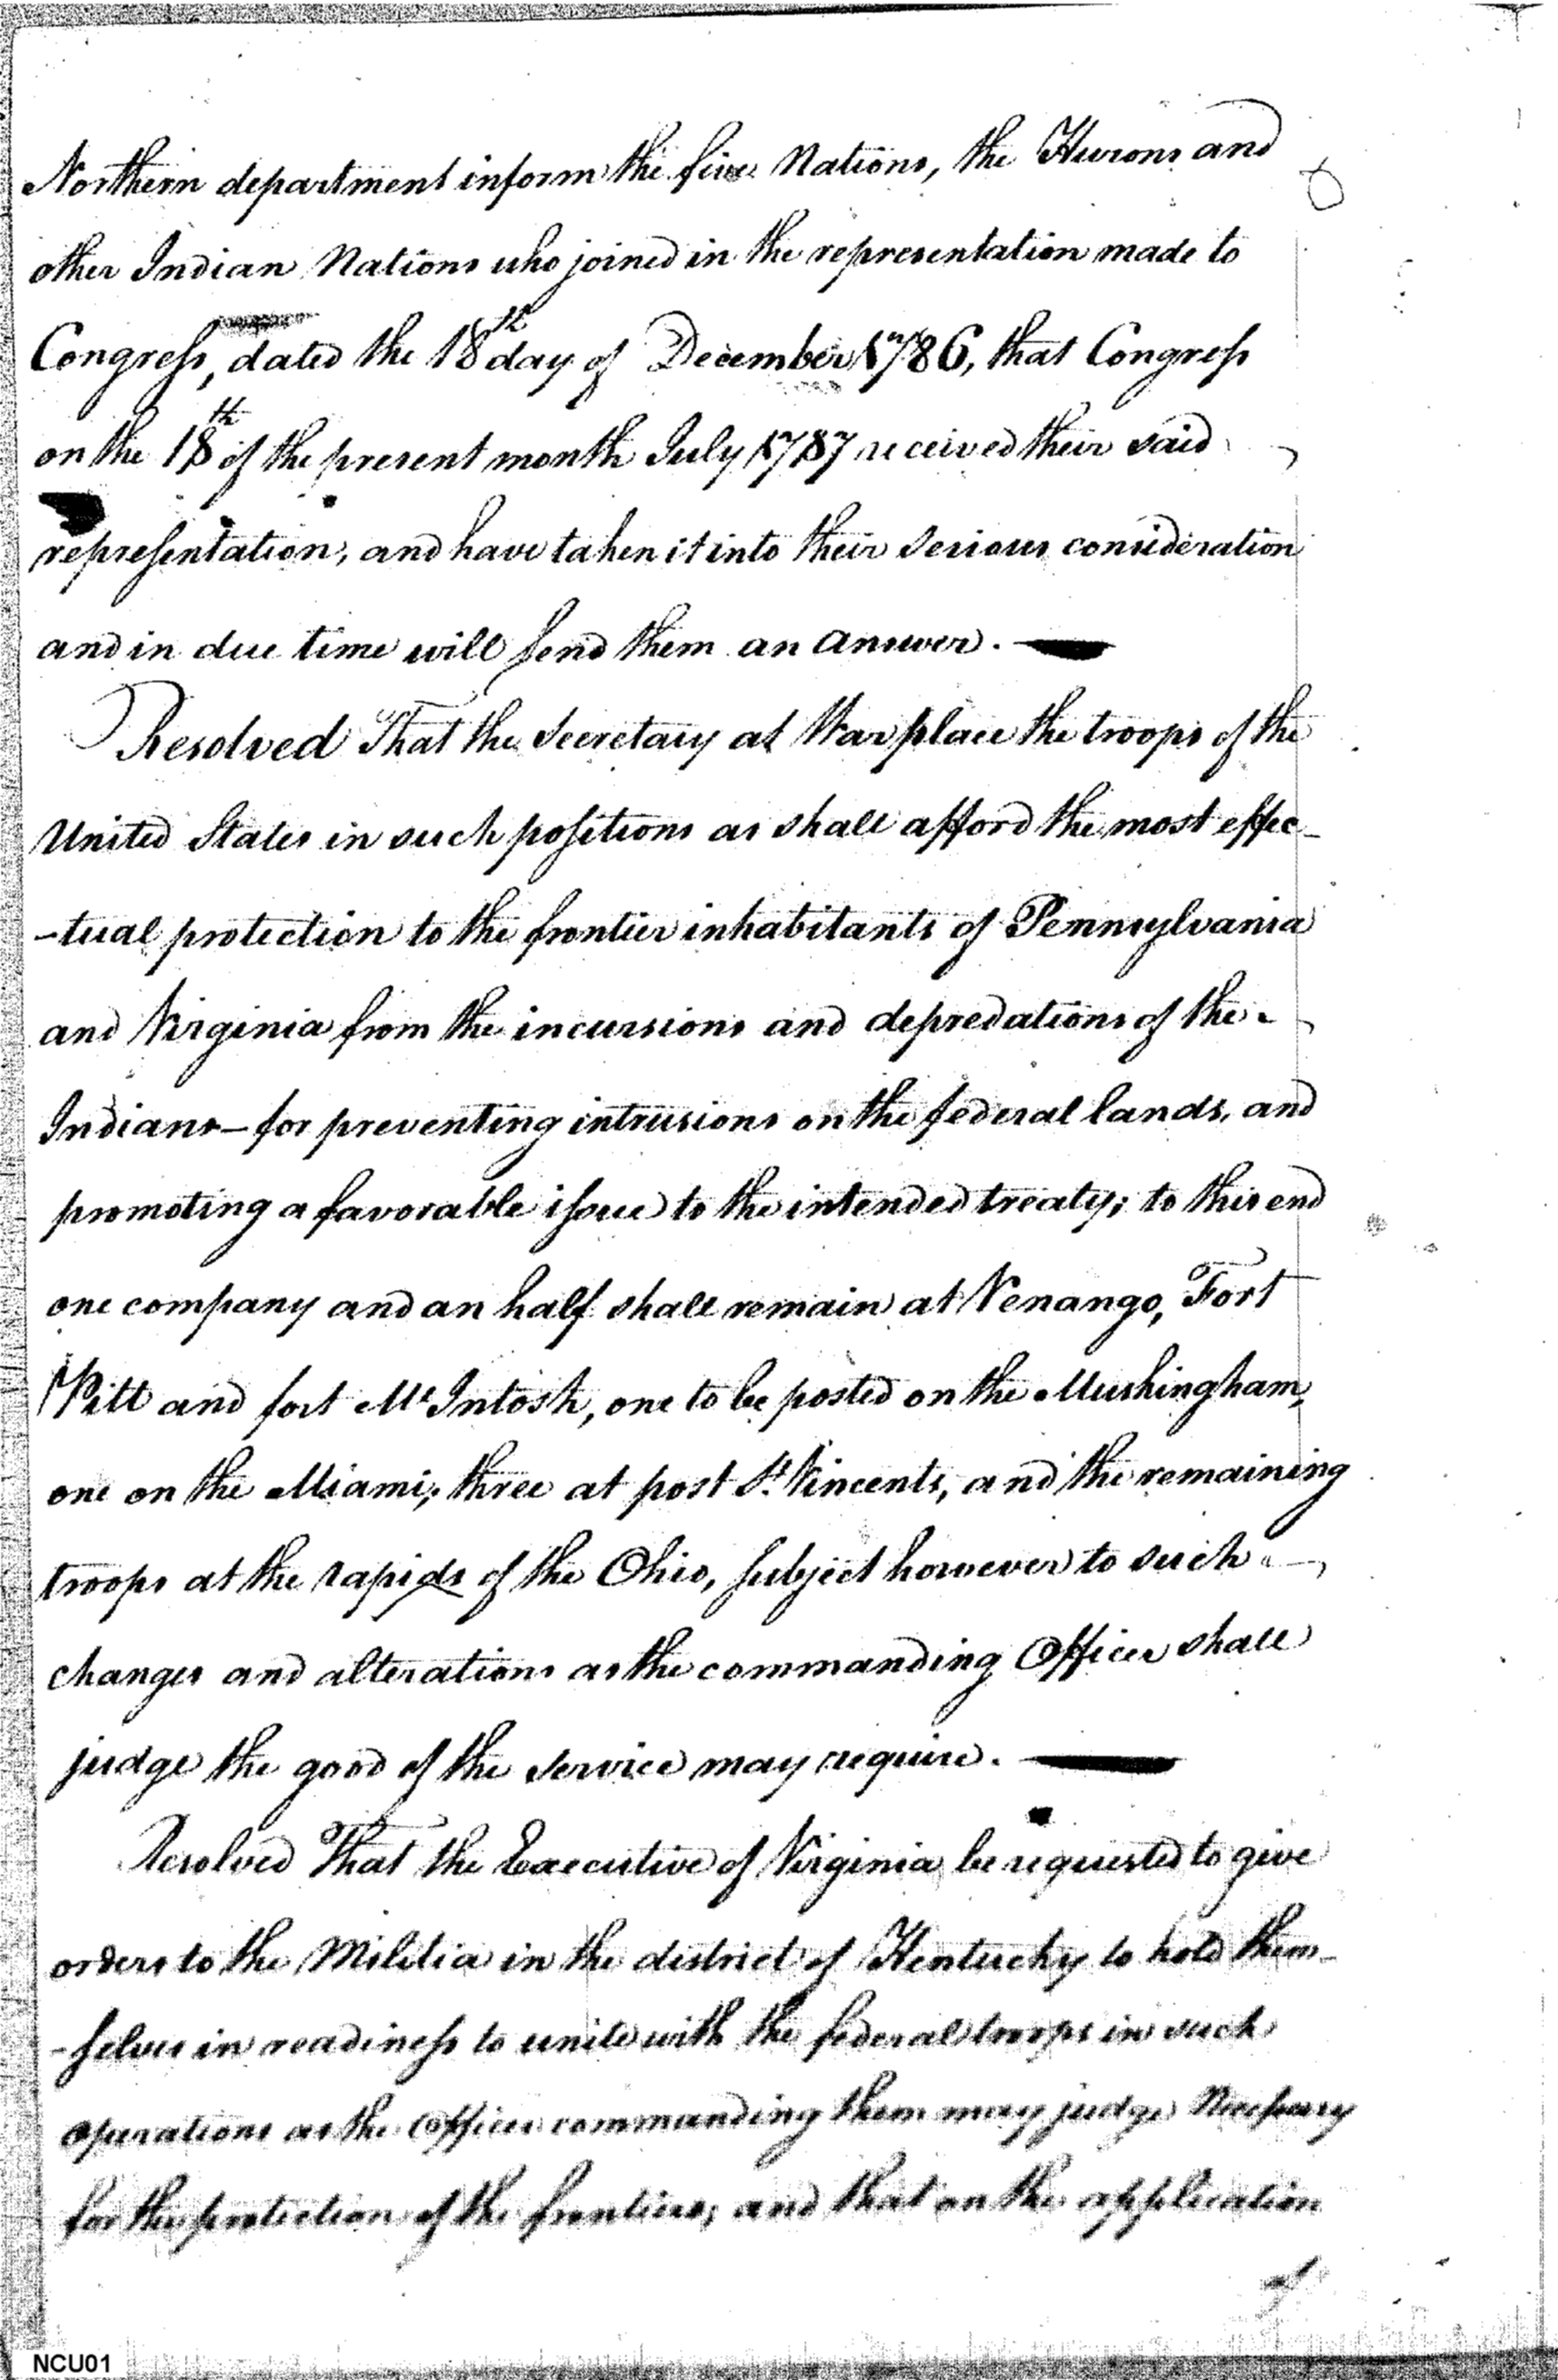 Northern department inform the five Nations, the Hurons and
other Indian Nations who joined in the representation made to
Congress, dated the 18th day of December 1786, that Congress
on the 18th of the present month July 1787 received their said
representation, and have taken it into their serious consideration
and in due time will send them an answer. —
Resolved That the Secretary at War place the troops of the
United States in such positions as shall afford the most effec-
-tual protection to the frontier inhabitants of Pennsylvania
and Virginia from the incursions and depredations of the
Indians — for preventing intrusions on the federal lands, and
promoting a favorable issue to the intended treaty; to this end
one company and an half shall remain at Venango, Fort
Pitt and fort McIntosh, one to be posted on the Mushingham,
one on the Miami, three at post St. Vincents, and the remaining
troops at the rapids of the Ohio, subject however to such
changes and alterations as the commanding Officer shall
judge the good of the service may require. —
Resolved That the Executive of Virginia be requested to give
orders to the Militia in the district of Kentucky to hold them-
-selves in readiness to unite with the federal troops in such
operations as the Officer commanding them may judge Necessary
for the protection of the frontiers; and that on the application
of
NCU01